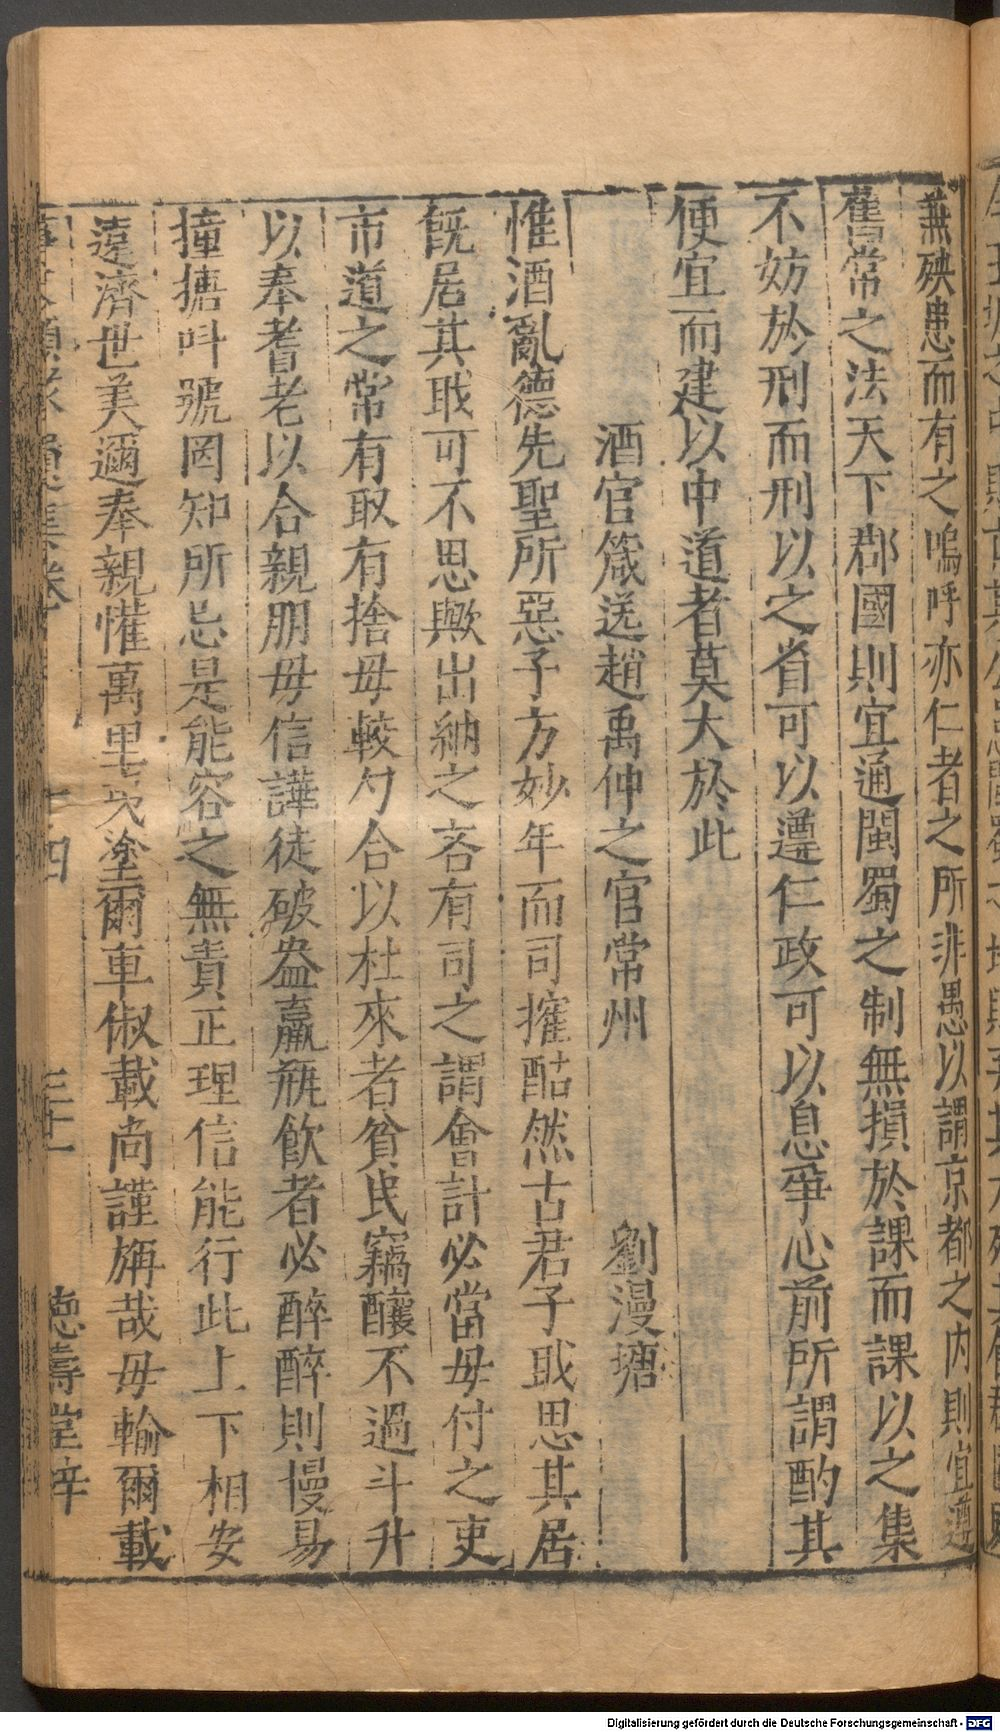 兼殃患而有之嗚呼亦仁者之所非愚以謂京都之内則宜遵
舊常之法天下郡國則宜通閩蜀之制無損於課而課以之集
不妨於刑而刑以之省可以遵仁政可以息爭心前所謂酌其
便宜而建以中道者莫大於此
酒官箴送趙禹仲之官常州
劉漫塘
惟酒亂德先聖所惡子方妙年而司搉酤然古君子戢思其居
旣居其戢可不思歟出納之吝有司之謂會計必當毋付之吏
市道之常有取有捨毋較勺合以杜來者貧民竊釀不過斗升
以奉耆老以合親朋毋信譁徒破盎羸瓶飲者必醉醉則慢易
撞搪呌號罔知所忌是能容之無責正理信能行此上下相安
遠濟世美邇奉親懽萬里堂塗爾車俶載尚謹旃哉毋輸爾載
四
德壽堂梓
Digitalisierung gefördert durch die Deutsche Forschungsgemeinschaft - DFG